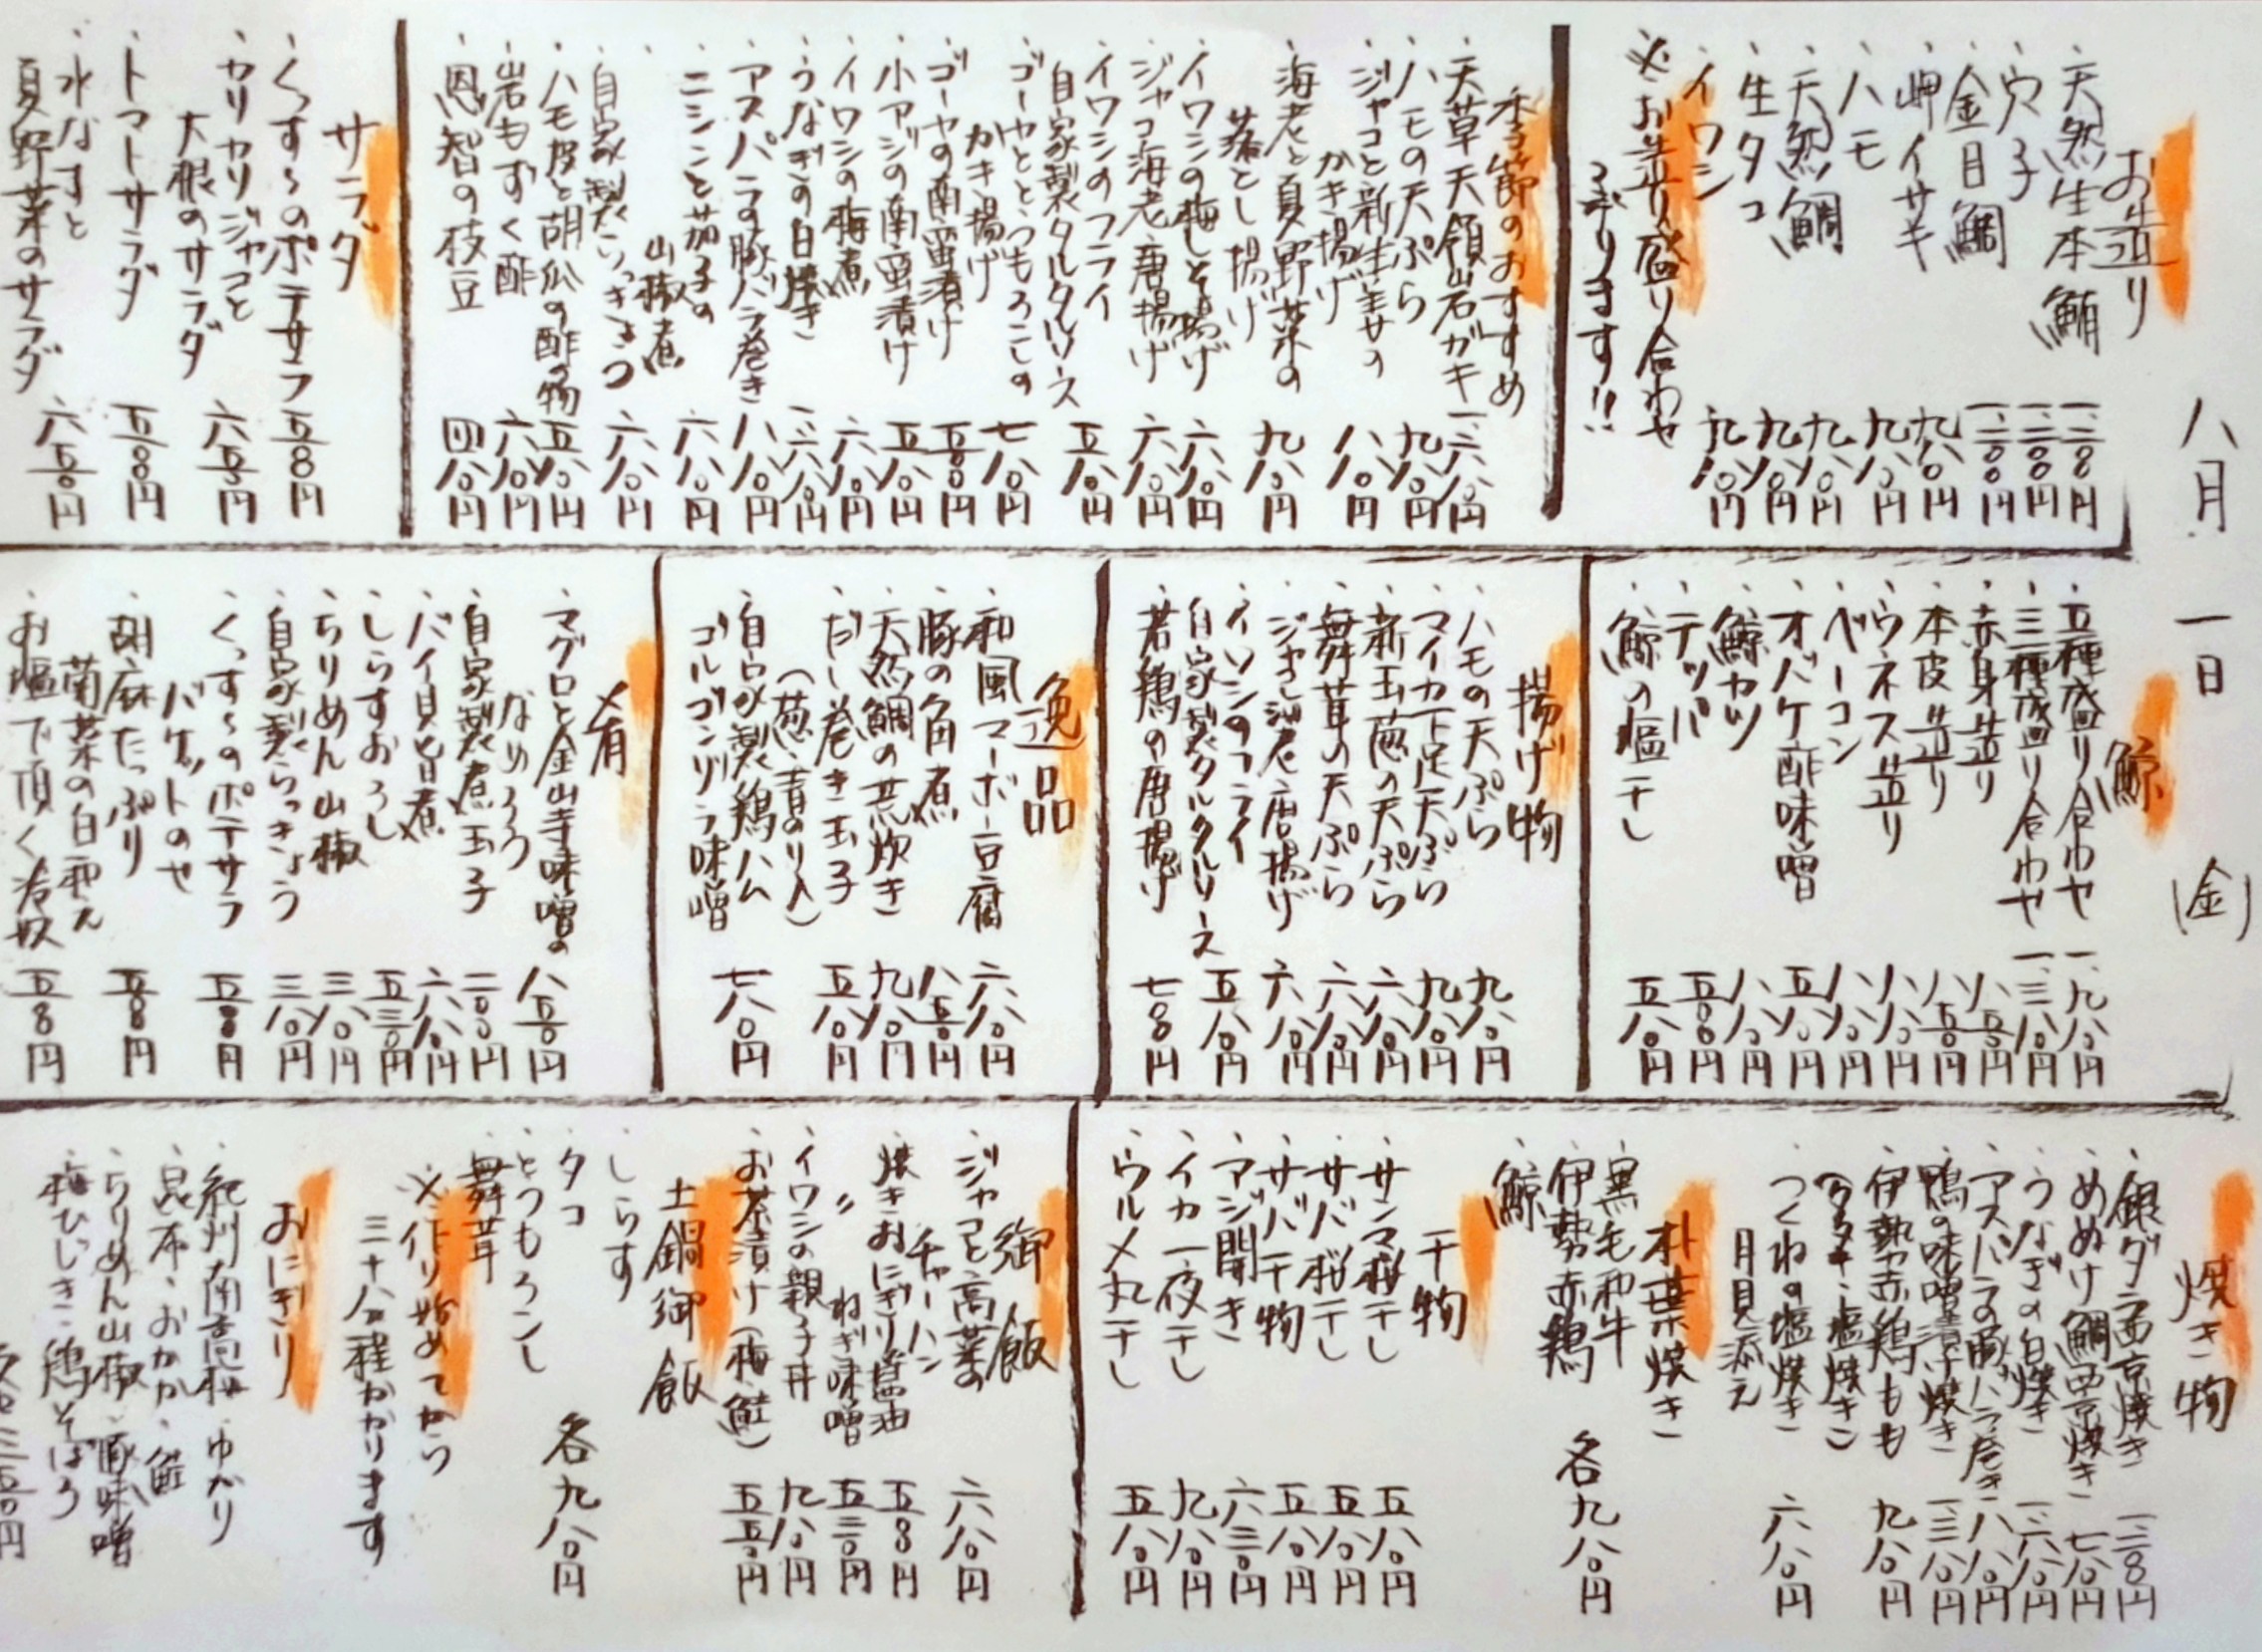 八月一日(金)
お造り
・天然生本鮪 一、二〇〇円
・穴子 一、二〇〇円
・金日鯛 一、二〇〇円
・岬イサキ 九八〇円
・ハモ 九八〇円
・天然鯛 九八〇円
・生タコ 九八〇円
・イワシ 九八〇円
※お造り盛り合わせ
承ります!!
季節のおすすめ
・天草天領岩ガキ 一、六八〇円
・ハモの天ぷら 九八〇円
・ジャコと新生姜の
かき揚げ 八八〇円
・海老と夏野菜の
落とし揚げ 九八〇円
・イワシの梅しそ揚げ 六八〇円
・ジャコ海老唐揚げ 六八〇円
・イワシのフライ
自家製タルタルソース 五八〇円
・ゴーヤととうもろこしの
かき揚げ 七八〇円
・ゴーヤの南蛮漬け 五〇〇円
・小アジの南蛮漬け 五八〇円
・イワシの梅煮 六八〇円
・うなぎの白焼き 一、六八〇円
・アスパラの豚バラ巻き 八八〇円
・ニシンと茄子の
山椒煮 六八〇円
・自家製たいっきょう 六八〇円
・ハモ皮と胡瓜の酢の物 五八〇円
・岩もずく酢 六八〇円
・恩智の枝豆 四八〇円
サラダ
・くっすぅのポテサラ 五〇〇円
・カリカリジャコと
大根のサラダ 六五〇円
・トマトサラダ 五〇〇円
・水なすと
夏野菜のサラダ 六五〇円
鯨
・五種盛り合わせ 一、九八〇円
・三種盛り合わせ 一、三八〇円
・赤身造り 八五〇円
・本皮造り 八五〇円
・ウネス造り 八八〇円
・ベーコン 八八〇円
・オバケ酢味噌 五八〇円
・鯨カツ 八八〇円
・テッパ 五〇〇円
・鯨の塩干し 五八〇円
揚げ物
・ハモの天ぷら 九八〇円
・マイカ下足天ぷら 九八〇円
・新玉葱の天ぷら 六八〇円
・舞茸の天ぷら 六八〇円
・ジャコ海老唐揚げ 六八〇円
・イワシのフライ
自家製タルタルソース 五八〇円
・若鶏の唐揚げ 七〇〇円
逸品
・和風マーボー豆腐 六八〇円
・豚の角煮 八五〇円
・天然鯛の荒炊き 九八〇円
・だし巻き玉子
(葱、青のり入) 五八〇円
・自家製鶏ハム
ゴルゴンゾラ味噌 七八〇円
肴
・マグロと金山寺味噌の
なめろう 八五〇円
・自家製煮玉子 二〇〇円
・バイ貝旨煮 六八〇円
・しらすおろし 五三〇円
・ちりめん山椒 三八〇円
・自家製らっきょう 三八〇円
・くっすぅのポテサラ
バケットのせ 五五〇円
・胡麻たっぷり
菊菜の白和え 五〇〇円
・お塩で頂く冷奴 五〇〇円
焼き物
・銀ダラ西京焼き 一、二〇〇円
・めぬけ鯛西京焼き 七八〇円
・うなぎの白焼き 一、六八〇円
・アスパラの豚バラ巻き 八八〇円
・鴨の味噌漬け焼き 一、三八〇円
・伊勢赤鶏もも
(タタキ・塩焼き) 九八〇円
・つくねの塩焼き
月見添え 六八〇円
朴葉焼き
・黒毛和牛
・伊勢赤鶏
・鯨
各九八〇円
干物
・サンマ桜干し 五八〇円
・サバ桜干し 五八〇円
・サバ干物 五八〇円
・アジ開き 六三〇円
・イカ一夜干し 九八〇円
・ウルメ丸干し 五八〇円
御飯
・ジャコと高菜の
チャーハン 六八〇円
・焼きおにぎり醤油 五〇〇円
・〃 ねぎ味噌 五三〇円
・イワシの親子丼 九八〇円
・お茶漬け(梅、鮭) 五五〇円
土鍋御飯
・しらす
・タコ
・とうもろこし
・舞茸
各九八〇円
※作り始めてから
三十分程かかります
おにぎり
・紀州南高梅・ゆかり
・昆布・おかか・鮭
・ちりめん山椒・豚味噌
・梅ひじき・鶏そぼろ
各二五〇円